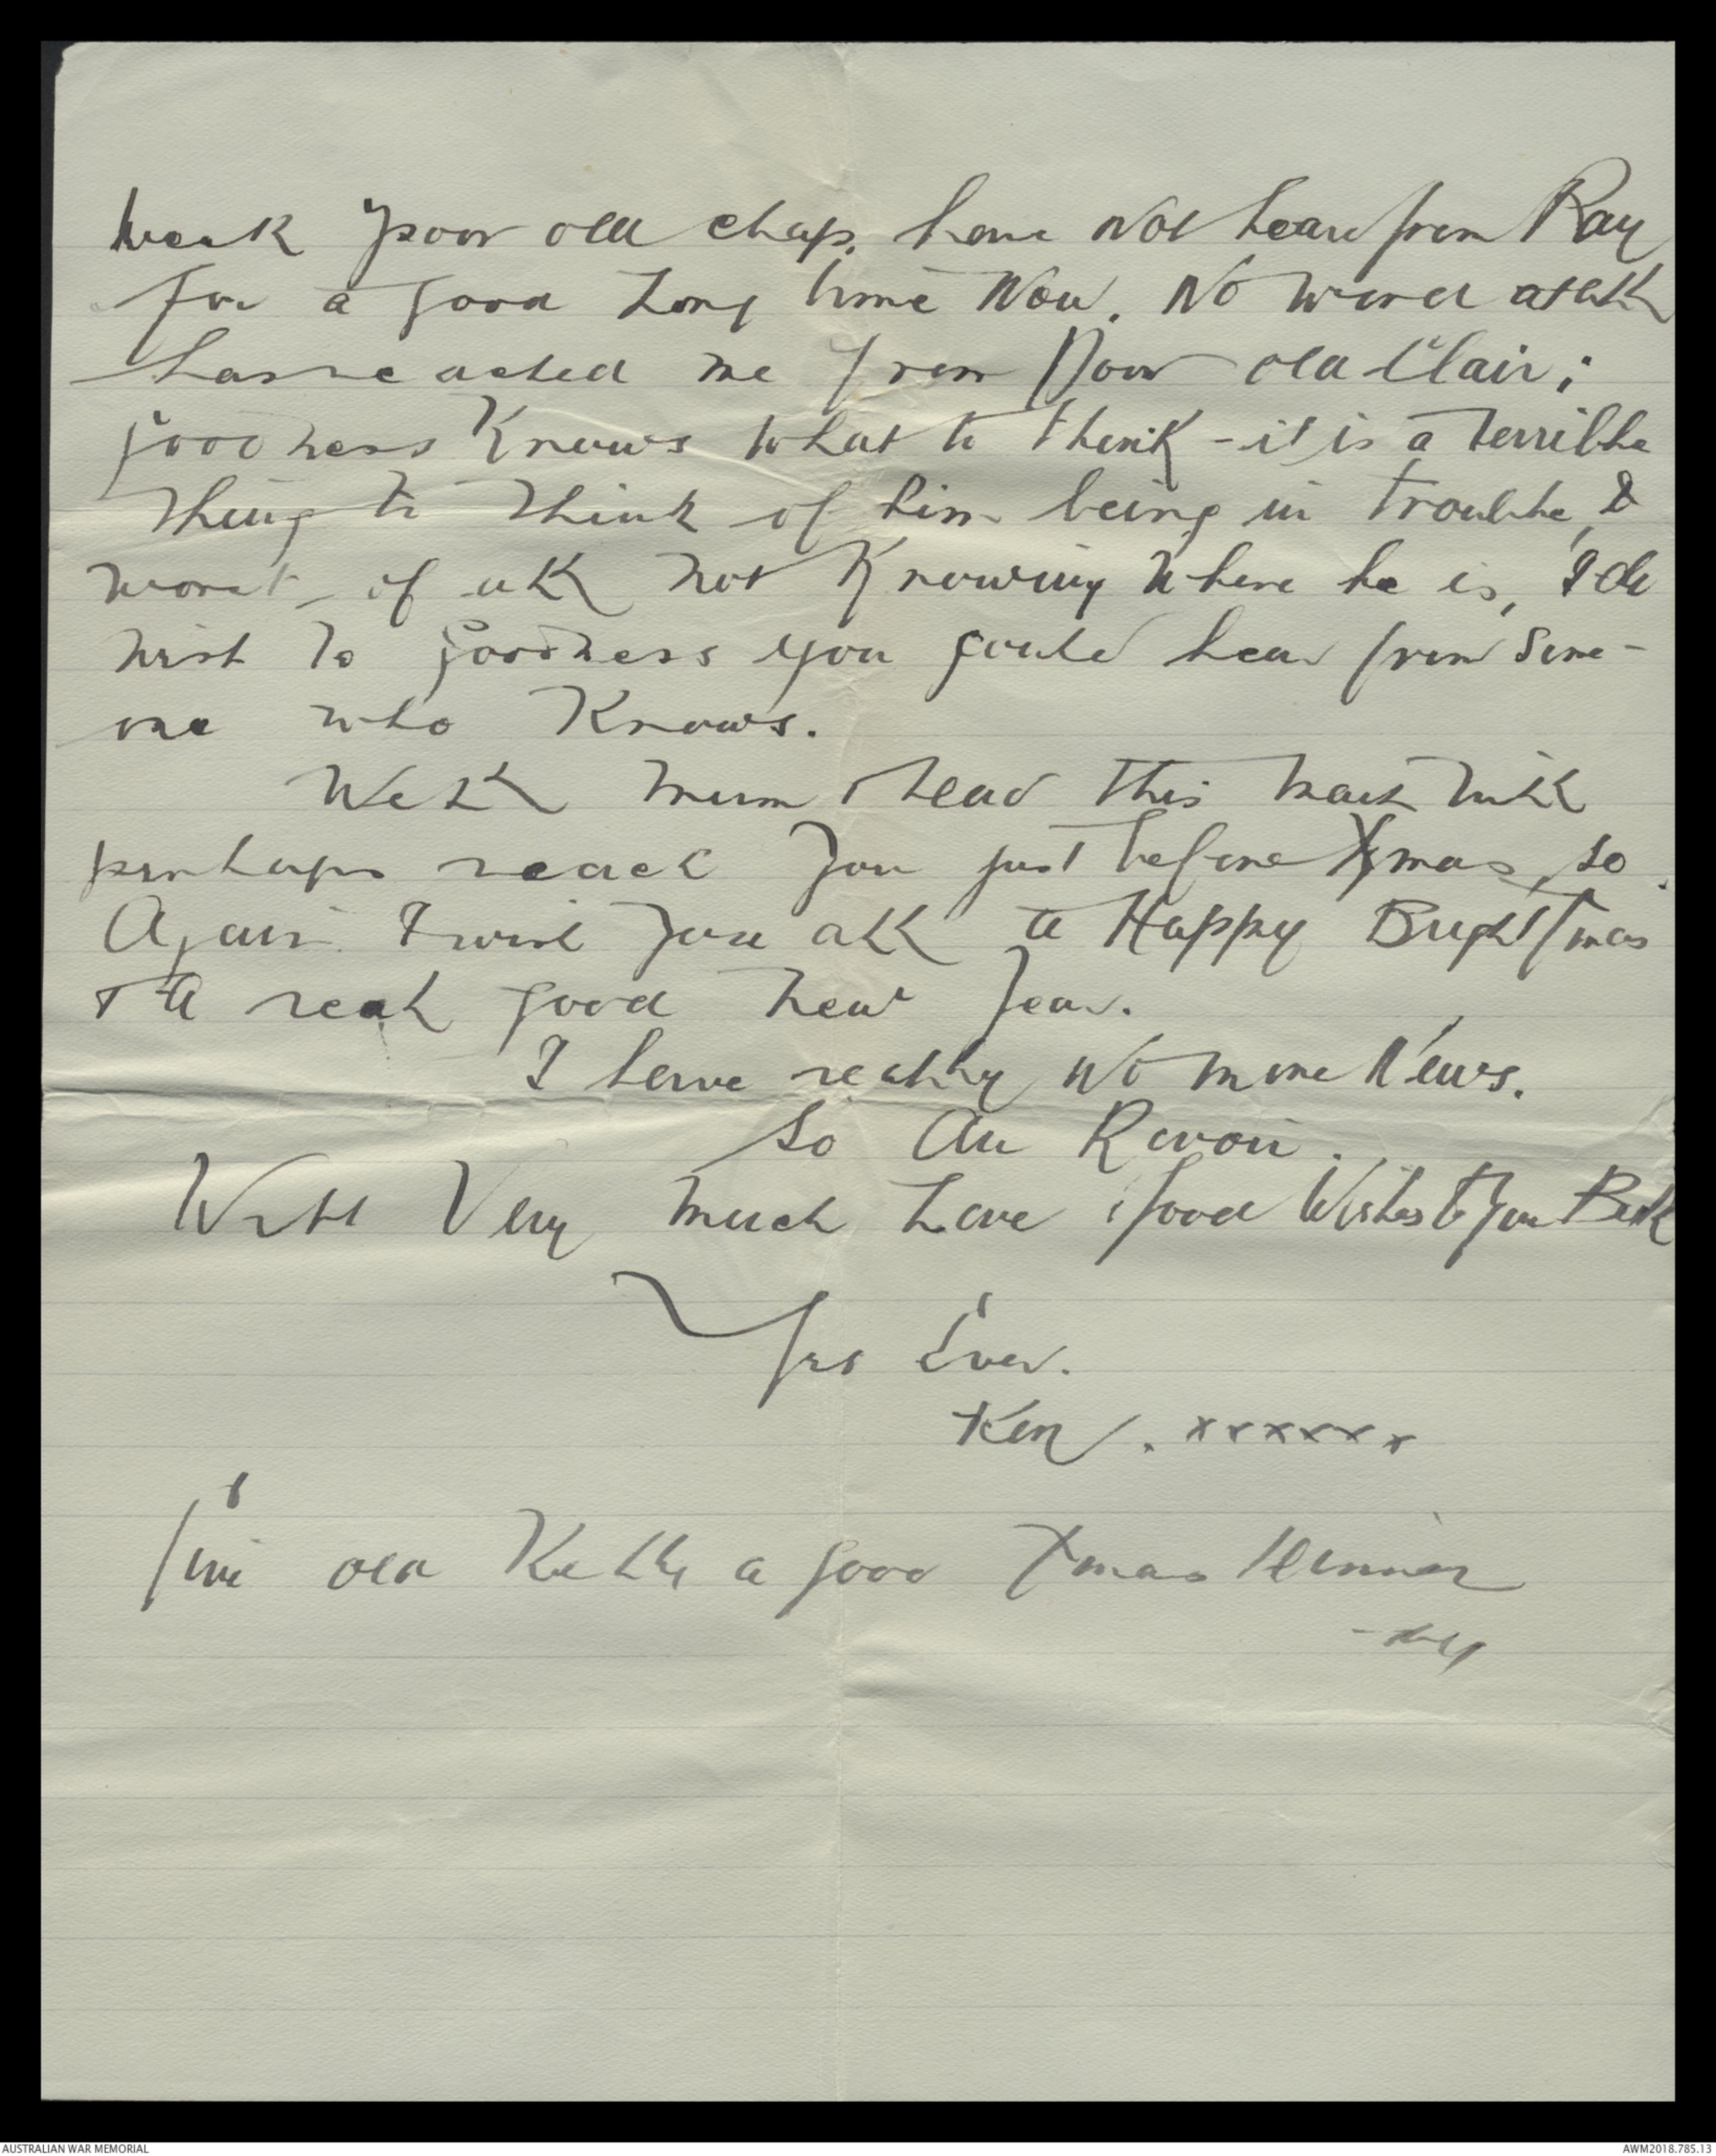 weak poor old chap. have not heard from Ray
for a good long time now. No word at all
has reached me from Poor old Clair;
goodness knows what to think - it is a terrible
thing to think of him being in trouble, &
worst of all not knowing where he is, I do
wish to goodness you could hear from some-
one who knows.
Well mum dear this mail will
perhaps reach you just before Xmas, so
Again I wish you all a Happy Bright Xmas
& A real good new year.
I have really no more News.
So Au Revoir.
With Very much Love & good Wishes to you Both
Yrs Ever.
Ken. xxxxxx
Give old Kelly a good Xmas dinner
AUSTRALIAN WAR MEMORIAL
AWM2018.785.13